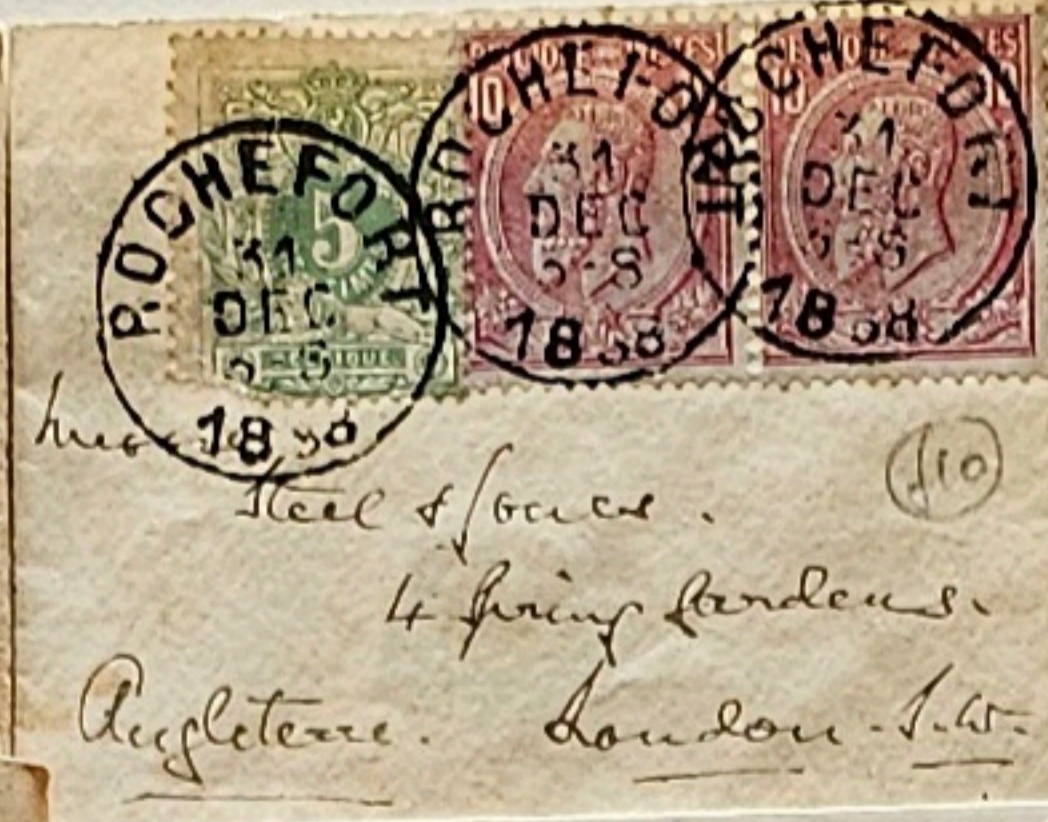 ROCHEFORT
31
DEC
18
5
ROCHEFORT
31
DEC
5-8
18 88
10
ROCHEFORT
31
DEC
5-8
18 88
10
£10
Steel & Jones.
4 Spring Gardens.
Angleterre. London. S.W.